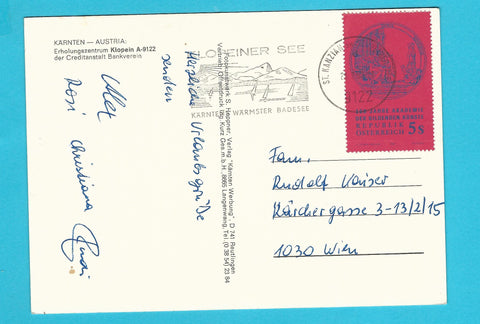 KÄRNTEN — AUSTRIA:
Erholungszentrum Klopein A-9122
der Creditanstalt Bankverein
Herzliche Urlaubsgrüße
senden
Rosi Christiana
KLOPEINER SEE
KÄRNTENS WÄRMSTER BADESEE
ST. KANZIAN
9122
AKADEMIE
DER BILDENDEN KÜNSTE
REPUBLIK
ÖSTERREICH 5s
Verlag "Kärnten Werbung", D 741 Reutlingen
Vertrieb: Offsetdruck Kurz Ges.m.b.H., 8665 Langenwang, Tel. (0 38 54) 23 84
Fam.
Rudolf Kaiser
Kärchergasse 3-13/2/15
1030 Wien